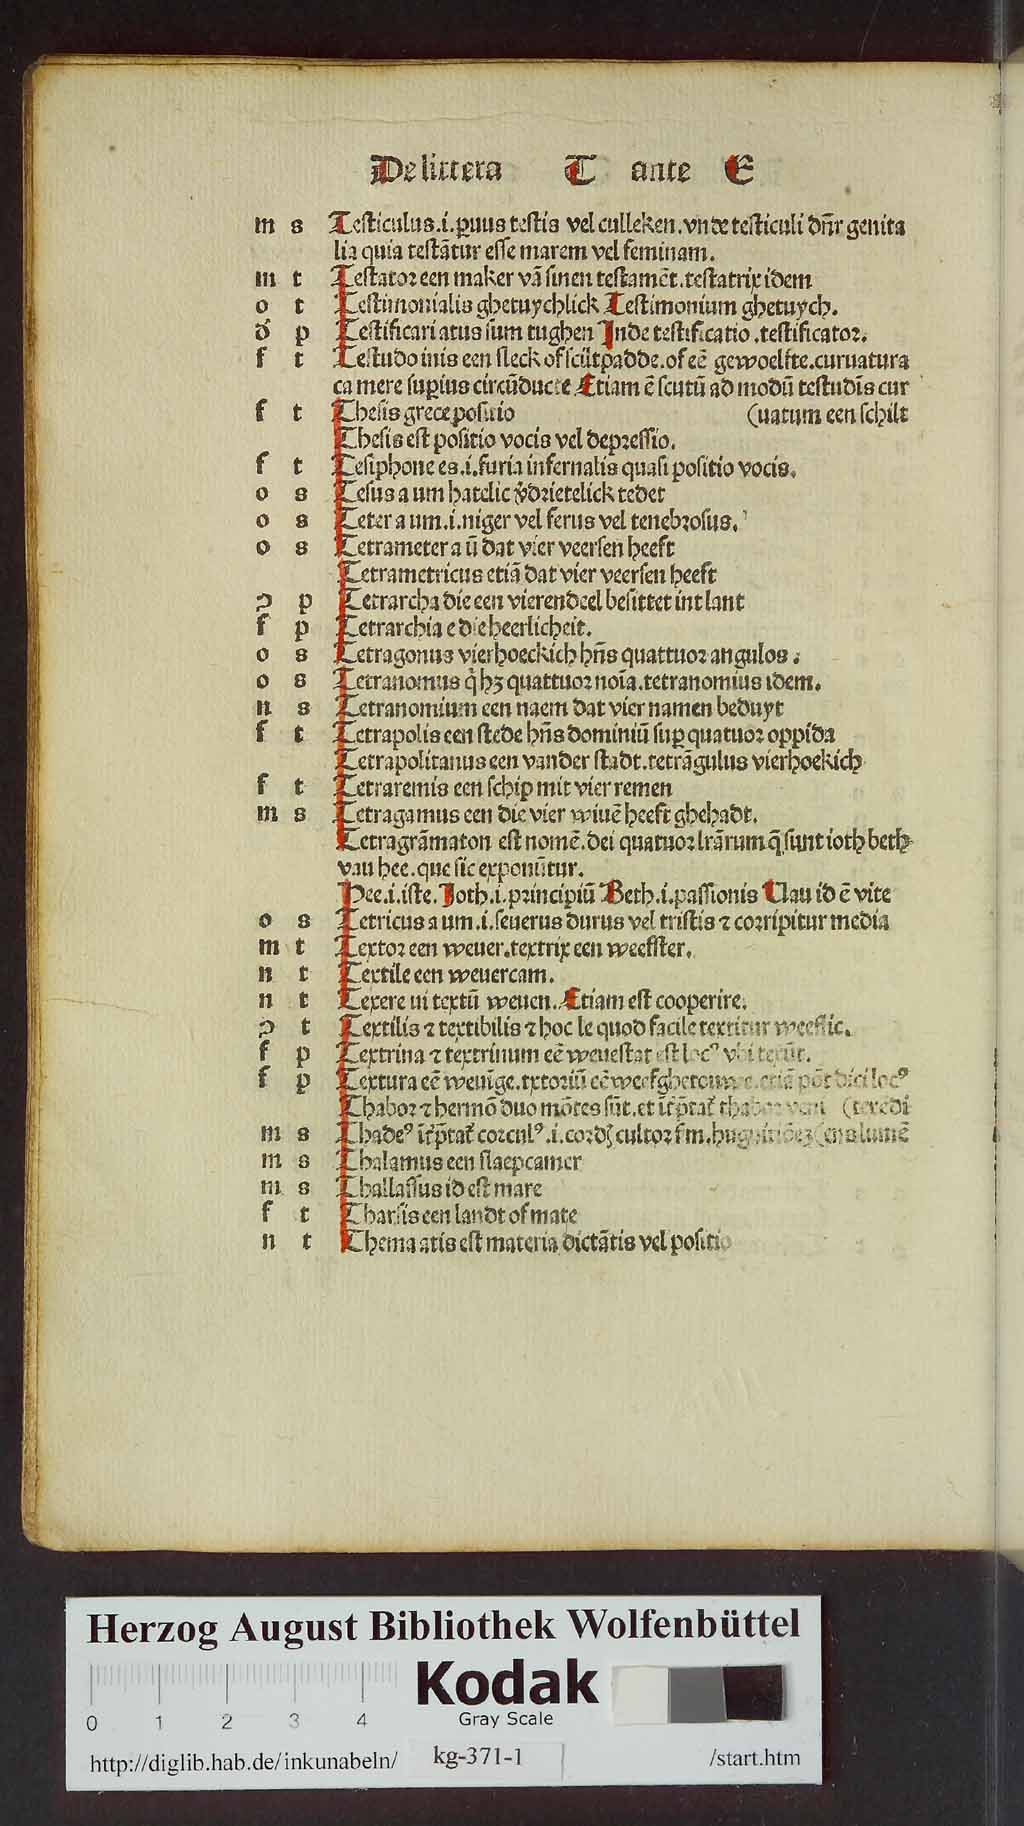 De littera T ante E
m s Testiculus.i.paruus testis vel culleken.vnde testiculi dn̄r genita
lia quia testātur esse marem vel feminam.
m t Testator een maker vā sinen testamēt.testatrix idem
o t Testimonialis ghetuychlick Testimonium ghetuych.
d̄ p Testificari atus sum tughen Inde testificatio.testificator.
f t Testudo inis een sleck of scūtpadde.of eē gewoelfte.curuatura
ca mere suꝑius circūducte Etiam ē scutū ad modū testudīs cur
f t Thesis grece positio (uatum een schilt
Thesis est positio vocis vel depressio.
f t Tesiphone es.i.furia infernalis quasi positio vocis.
o s Tesus a um hatelic v̄drietelick tedet
o s Teter a um.i.niger vel ferus vel tenebrosus.
o s Tetrameter a ū dat vier veersen heeft
Tetrametricus etiā dat vier veersen heeft
ꝯ p Tetrarcha die een vierendeel besittet int lant
f p Tetrarchia e die heerlicheit.
o s Tetragonus vierhoeckich hn̄s quattuor angulos.
o s Tetranomus q̇ hꝫ quattuor noīa.tetranomius idem.
n s Tetranomium een naem dat vier namen beduyt
f t Tetrapolis een stede hn̄s dominiū suꝑ quatuor oppida
Tetrapolitanus een vander stadt.tetrāgulus vierhoekich
f t Tetraremis een schip mit vier remen
m s Tetragamus een die vier wiuē heeft ghehadt.
Tetragrāmaton est nomē.dei quatuor lrārum q̄ sunt ioth beth
vau hee.que sic exponūtur.
Hee.i.iste.Ioth.i.principiū Beth.i.passionis Uau id ē vite
o s Tetricus a um.i.seuerus durus vel tristis ⁊ corripitur media
m t Textor een weuer.textrix een weefster.
n t Textile een weuercam.
n t Texere ui textū weuen.Etiam est cooperire.
ꝯ t Textilis ⁊ textibilis ⁊ hoc le quod facile textitur weeflic.
f p Textrina ⁊ textrinum eē weuestat est locꝰ vbi texūt.
f p Textura eē weuīge.txtoriū eē weefghetouwe.etiā pōt dici locꝰ
Thabor ⁊ hermō duo mōtes sūt.et īt̄p̄tat᷑ thabor veni (texēdi
m s Thadeꝰ īt̄p̄tat᷑ corculꝰ.i.cordꝭ cultor fm. (ens lumē
m s Thalamus een slaepcamer
m s Thallassus id est mare
f t Tharsis een landt of mate
n t Thema atis est materia dictātis vel positio
Herzog August Bibliothek Wolfenbüttel
0 1 2 3 4
Kodak
Gray Scale
http://diglib.hab.de/inkunabeln/ kg-371-1 /start.htm